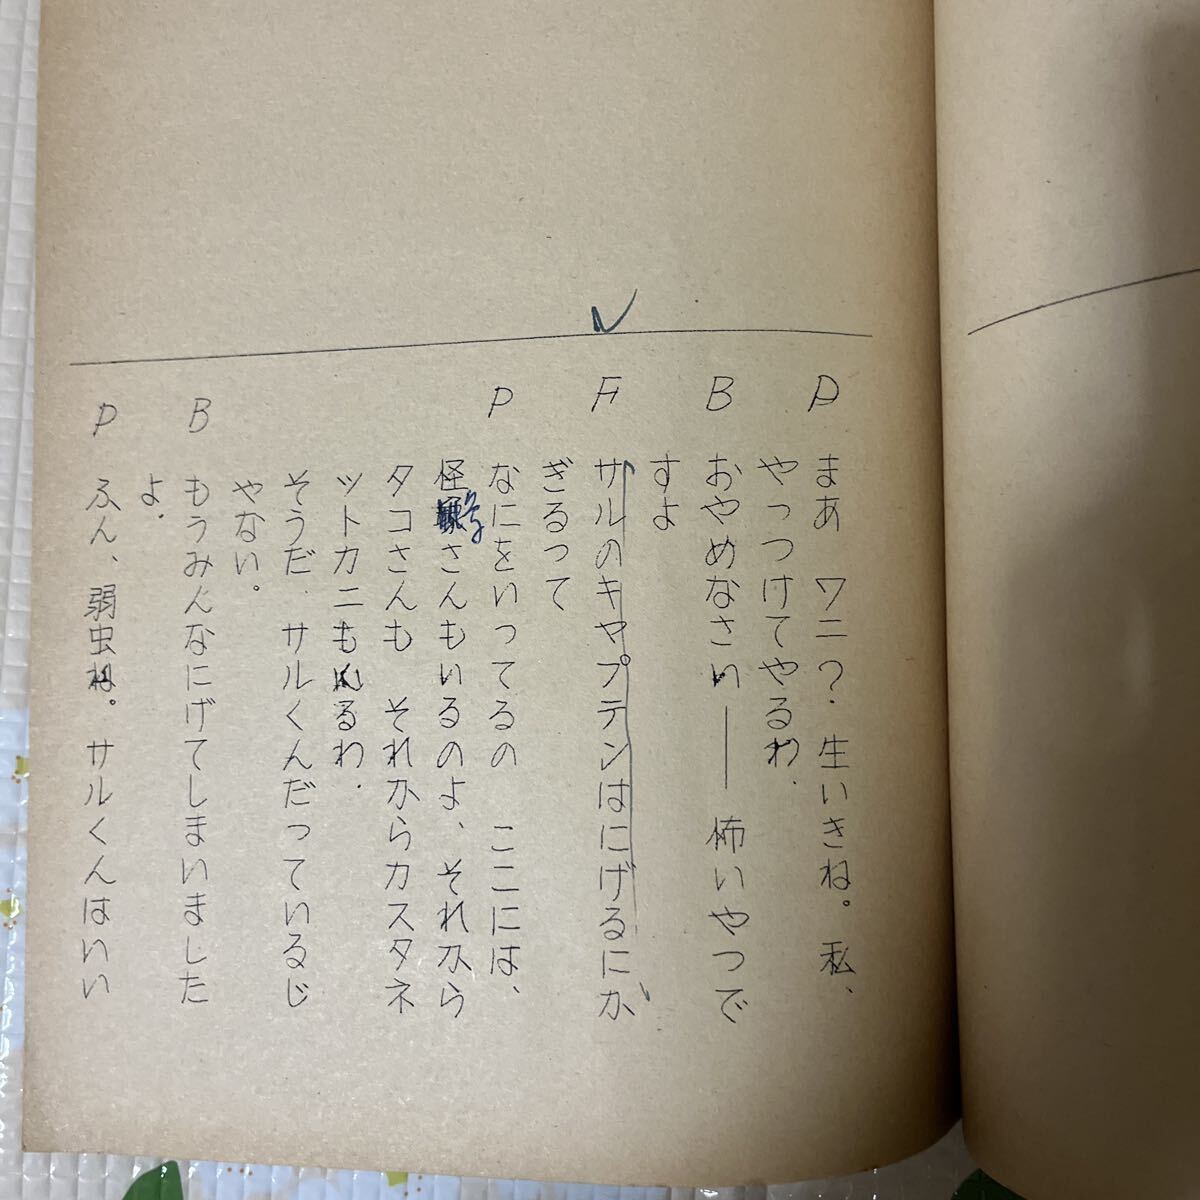 P まあ ワニ?. 生いきね。 私、
やっつけてやるわ.
B おやめなさい―― 怖いやつで
すよ
F サルのキャプテンはにげるにか
ぎるって
P なにをいってるの ここには、
怪 さんもいるのよ、それから
タコさんも それからカスタネ
ットカニもいるわ.
そうだ. サルくんだっているじ
ゃない。
B もうみんなにげてしまいました
よ.
P ふん、弱虫ね。サルくんはいい